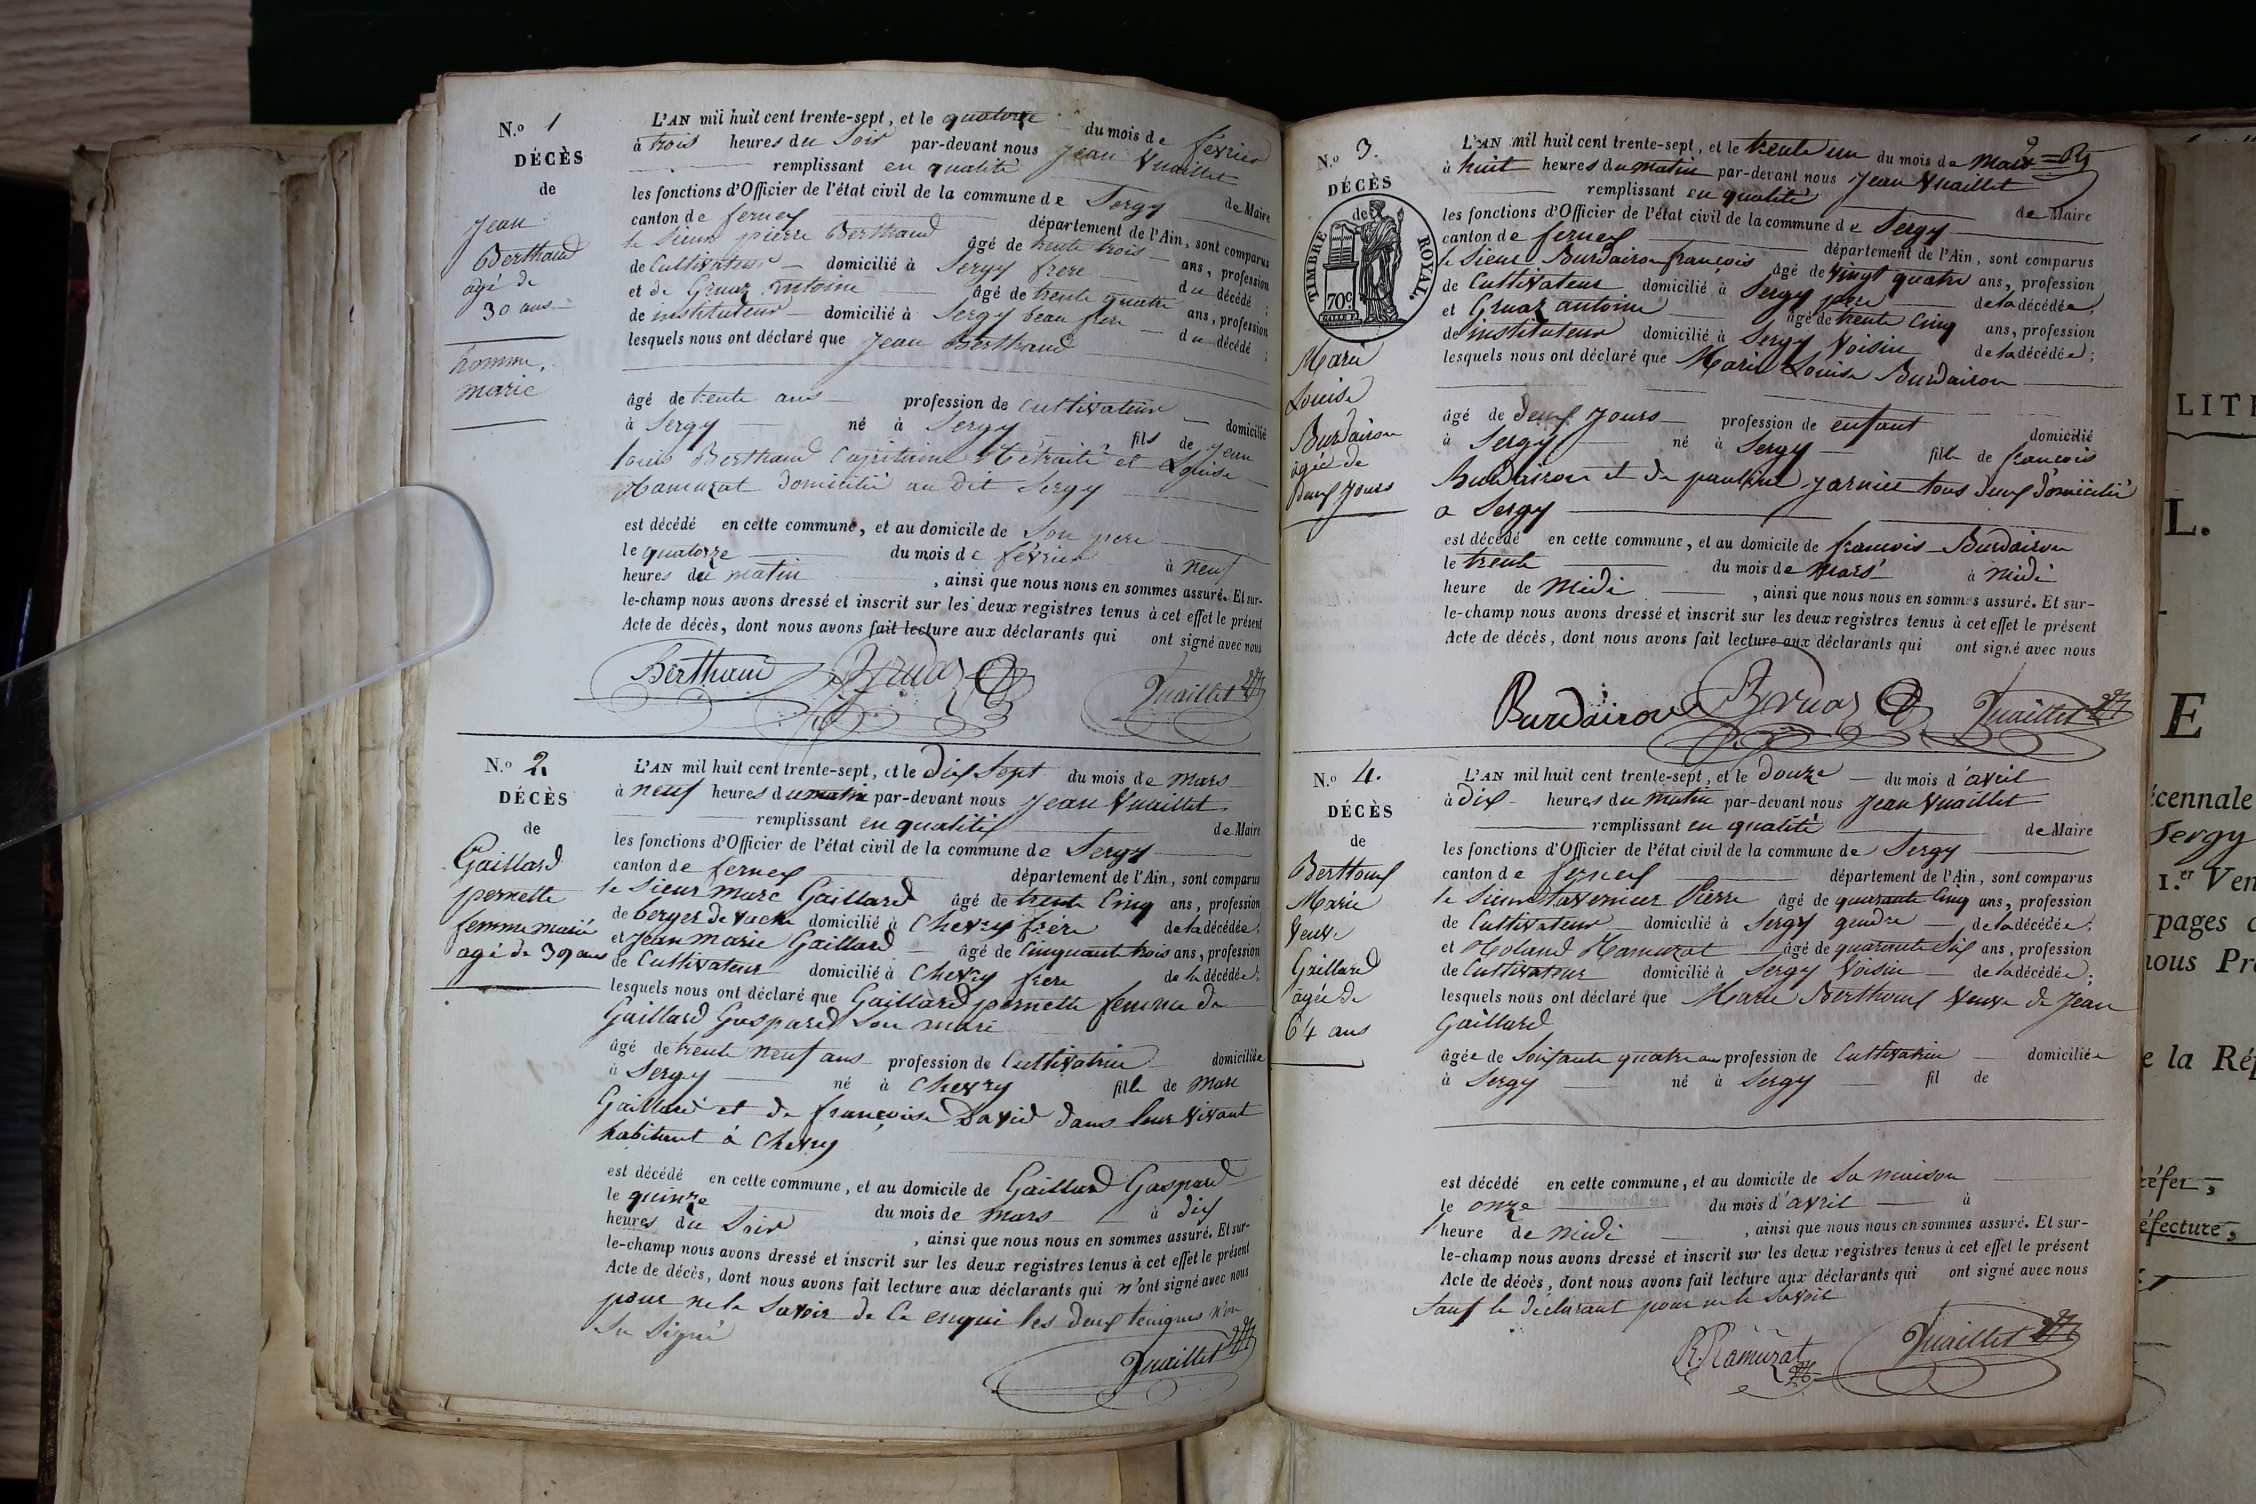 N.º 1
DÉCÈS
de
Jean
Berthaud
agé de
30 ans
homme,
marié
L'AN mil huit cent trente-sept, et le quatorze du mois de février
à trois heures du Soir par-devant nous Jean Vuaillet
remplissant en qualité de Maire
les fonctions d'Officier de l'état civil de la commune de Sergy
canton de ferney département de l'Ain, sont comparus
le Sieur pierre Berthaud âgé de trente trois ans, profession
de Cultivateur domicilié à Sergy frere du décédé ;
et de Gruaz antoine âgé de trente quatre ans, profession
de instituteur domicilié à Sergy beau frere du décédé ;
lesquels nous ont déclaré que Jean Berthaud
âgé de trente ans profession de Cultivateur domicilié
à Sergy né à Sergy fils de Jean
Louis Berthaud Capitaine Rétraité et Louise
Ramuzat domicilié au dit Sergy
est décédé en cette commune, et au domicile de Son pere
le quatorze du mois de février à neuf
heures du matin , ainsi que nous nous en sommes assuré. Et sur-
le-champ nous avons dressé et inscrit sur les deux registres tenus à cet effet le présent
Acte de décès, dont nous avons fait lecture aux déclarants qui ont signé avec nous
Berthaud Gruaz Vuaillet
N.º 2.
DÉCÈS
de
Gaillard
pernette
femme marié
agé de 39 ans
L'AN mil huit cent trente-sept, et le dix Sept du mois de mars
à neuf heures du matin par-devant nous Jean Vuaillet
remplissant en qualité de Maire
les fonctions d'Officier de l'état civil de la commune de Sergy
canton de ferney département de l'Ain, sont comparus
le Sieur marc Gaillard âgé de trente Cinq ans, profession
de berger de vache domicilié à Chevry frére de la décédée ;
et Jean marie Gaillard âgé de Cinquante trois ans, profession
de Cultivateur domicilié à Chevry frere de la décédée ;
lesquels nous ont déclaré que Gaillard pernette femme de
Gaillard Gaspard Son mari
âgé de trente neuf ans profession de Cultivatrice domiciliée
à Sergy né à Chevry fille de Marc
Gaillard et de françoise David dans leur vivant
habitant à Chevry
est décédé en cette commune, et au domicile de Gaillard Gaspard
le quinze du mois de mars à dix
heures du Soir , ainsi que nous nous en sommes assuré. Et sur-
le-champ nous avons dressé et inscrit sur les deux registres tenus à cet effet le présent
Acte de décès, dont nous avons fait lecture aux déclarants qui n'ont signé avec nous
pour ne le Savoir de Ce enqui les deux temignes n'on
Signé
Vuaillet
N.º 3.
DÉCÈS
de
TIMBRE ROYAL.
70c.
Marie
Louise
Burdairon
agée de
deux Jours
L'AN mil huit cent trente-sept, et le trente un du mois de Mars
à huit heures du matin par-devant nous Jean Vuaillet
remplissant en qualité de Maire
les fonctions d'Officier de l'état civil de la commune de Sergy
canton de ferney département de l'Ain, sont comparus
le Sieur Burdairon françois âgé de vingt quatre ans, profession
de Cultivateur domicilié à Sergy pere de la décédée ;
et Gruaz antoine âgé de trente Cinq ans, profession
de instituteur domicilié à Sergy Voisin de la décédée ;
lesquels nous ont déclaré que Marie Louise Burdairon
âgé de deux Jours profession de enfant domicilié
à Sergy né à Sergy fille de francois
Burdairon et de pauline Jarnier tous deux domicilié
a Sergy
est décédé en cette commune, et au domicile de francois Burdairon
le trente du mois de mars à midi
heure de Midi , ainsi que nous nous en sommes assuré. Et sur-
le-champ nous avons dressé et inscrit sur les deux registres tenus à cet effet le présent
Acte de décès, dont nous avons fait lecture aux déclarants qui ont signé avec nous
Burdairon Gruaz Vuaillet
N.º 4.
DÉCÈS
de
Berthoux
Marie
Veuve
Gaillard
agée de
64 ans
L'AN mil huit cent trente-sept, et le douze du mois d'avril
à dix heures du matin par-devant nous Jean Vuaillet
remplissant en qualité de Maire
les fonctions d'Officier de l'état civil de la commune de Sergy
canton de ferney département de l'Ain, sont comparus
le Sieur Tavernier Pierre âgé de quarante Cinq ans, profession
de Cultivateur domicilié à Sergy gendre de la décédée ;
et Roland Ramuzat âgé de quarante dix ans, profession
de Cultivateur domicilié à Sergy Voisin de la décédée ;
lesquels nous ont déclaré que Marie Berthoux Veuve de Jean
Gaillard
âgée de Soixante quatre ans profession de Cultivatrice domiciliée
à Sergy né à Sergy fil de
est décédé en cette commune, et au domicile de Sa maison
le onze du mois d'avril à
1 heure de midi , ainsi que nous nous en sommes assuré. Et sur-
le-champ nous avons dressé et inscrit sur les deux registres tenus à cet effet le présent
Acte de décès, dont nous avons fait lecture aux déclarants qui ont signé avec nous
Sauf le déclarant pour ne le Savoir
R. Ramuzat Vuaillet
LITE
L.
E
écennale
Sergy
1.er Ven
pages
nous Pr
e la Rép
réfet,
éfecture,